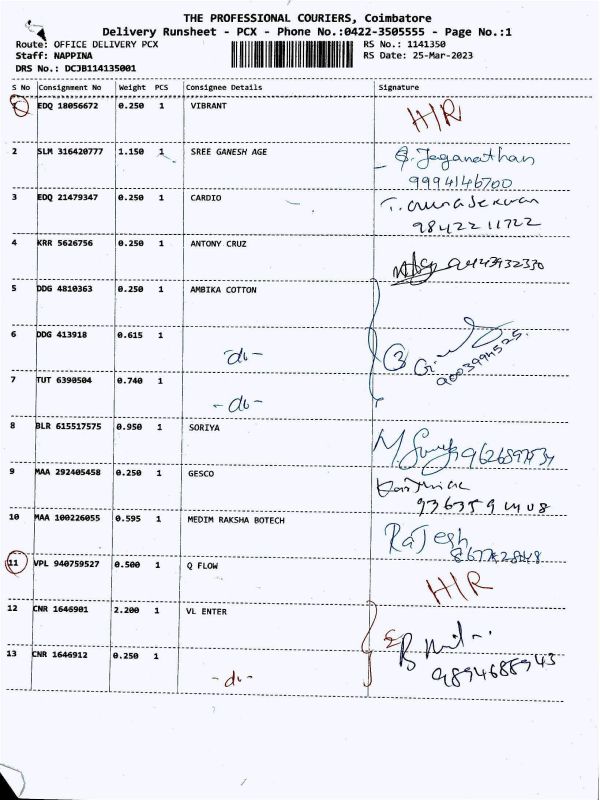 THE PROFESSIONAL COURIERS, Coimbatore
Delivery Runsheet - PCX - Phone No.:0422-3505555 - Page No.:1
Route: OFFICE DELIVERY PCX RS No.: 1141350
Staff: NAPPINA RS Date: 25-Mar-2023
DRS No.: DCJB114135001
S No Consignment No Weight PCS Consignee Details Signature
1 EDQ 18056672 0.250 1 VIBRANT H/R
2 SLM 316420777 1.150 1 SREE GANESH AGE S. Jaganathan
9994146700
3 EDQ 21479347 0.250 1 CARDIO
9842211722
4 KRR 5626756 0.250 1 ANTONY CRUZ 9443932330
5 DDG 4810363 0.250 1 AMBIKA COTTON
6 DDG 413918 0.615 1 -do- 3
7 TUT 6390504 0.740 1 -do-
8 BLR 615517575 0.950 1 SORIYA
9 MAA 292405458 0.250 1 GESCO
10 MAA 100226055 0.595 1 MEDIM RAKSHA BOTECH Rajesh
11 VPL 940759527 0.500 1 Q FLOW H/R
12 CNR 1646901 2.200 1 VL ENTER
13 CNR 1646912 0.250 1 -do- 9894688943